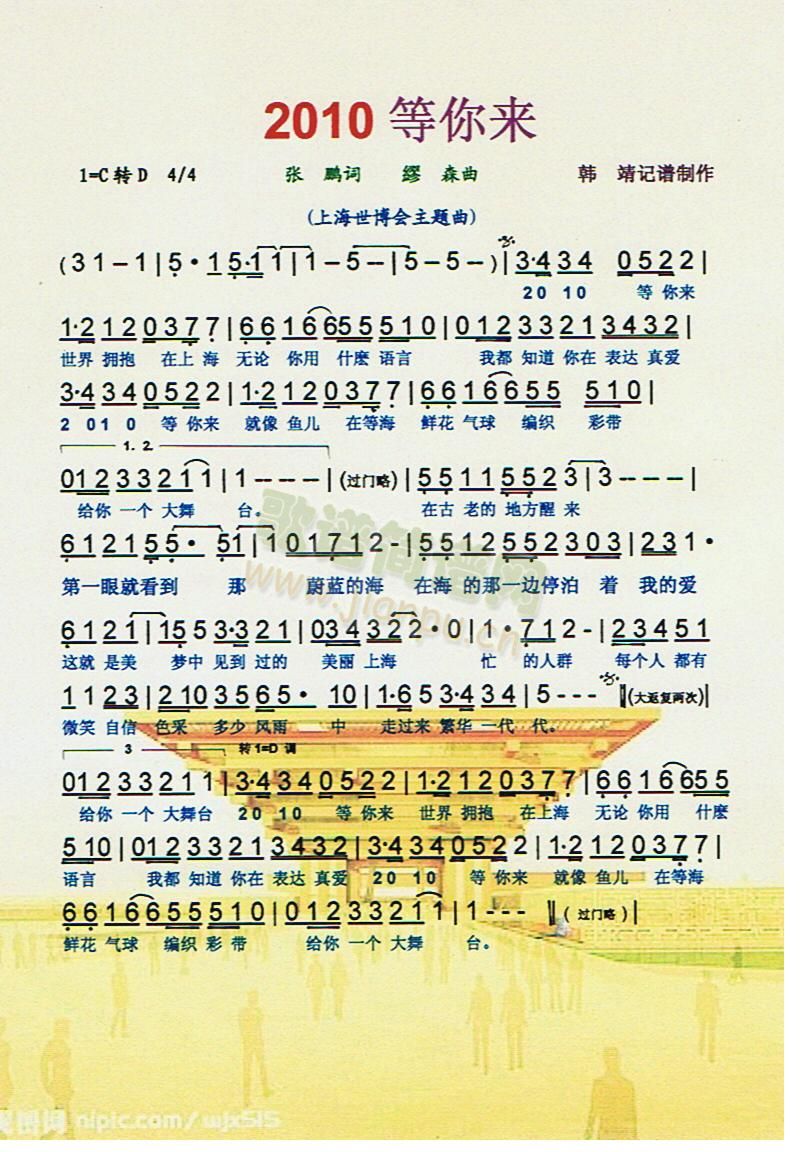 2010 等你来
1=C 转 D 4/4 张 鹏词 缪 森曲 韩 靖记谱制作
(上海世博会主题曲)
( 3 1 – 1 | 5 · 1 5·1 1 | 1 – 5 – – | 5 – 5 – – ) | 3·4 3 4 0 5 2 2 |
20 10 等 你来
1·2 1 2 0 3 7 7 | 6 6 1 6 6 5 5 5 1 0 | 0 1 2 3 3 2 1 3 4 3 2 |
世界 拥抱 在上 海 无论 你用 什麽 语言 我都 知道 你在 表达 真爱
3·4 3 4 0 5 2 2 | 1·2 1 2 0 3 7 7 | 6 6 1 6 6 5 5 5 1 0 |
2 01 0 等 你来 就像 鱼儿 在等海 鲜花 气球 编织 彩带
1. 2.
0 1 2 3 3 2 1 1 | 1 - - - - | (过门略) | 5 5 1 1 5 5 2 3 | 3 - - - -
给你 一个 大舞 台。 在古 老的 地方醒 来
6 1 2 1 5 5 · 5 1 | 1 0 1 7 1 2 - | 5 5 1 2 5 5 2 3 0 3 | 2 3 1 ·
第一眼就看到 那 蔚蓝的海 在海 的那一边停泊 着 我的爱
6 1 2 1 | 1 5 5 3·3 2 1 | 0 3 4 3 2 2 · 0 | 1 · 7 1 2 - | 2 3 4 5 1
这就 是美 梦中 见到 过的 美丽 上海 忙 的人群 每个人 都有
1 1 2 3 | 2 1 0 3 5 6 5 · 1 0 | 1·6 5 3·4 3 4 | 5 - - - (大返复两次)
微笑 自信 色采 多少 风雨 中 走过来 繁华 一代 代。
3 转 1=D 调
0 1 2 3 3 2 1 1 | 3·4 3 4 0 5 2 2 | 1·2 1 2 0 3 7 7 | 6 6 1 6 6 5 5
给你 一个 大舞台 20 10 等 你来 世界 拥抱 在上海 无论 你用 什麽
5 1 0 | 0 1 2 3 3 2 1 3 4 3 2 | 3·4 3 4 0 5 2 2 | 1·2 1 2 0 3 7 7 |
语言 我都 知道 你在 表达 真爱 20 10 等 你来 就像 鱼儿 在等海
6 6 1 6 6 5 5 5 1 0 | 0 1 2 3 3 2 1 1 | 1 - - - ‖ ( 过门略 ) |
鲜花 气球 编织 彩 带 给你 一个 大舞 台。
歌谱简谱网
www.jianpu.cn
nipic.com/wjx515